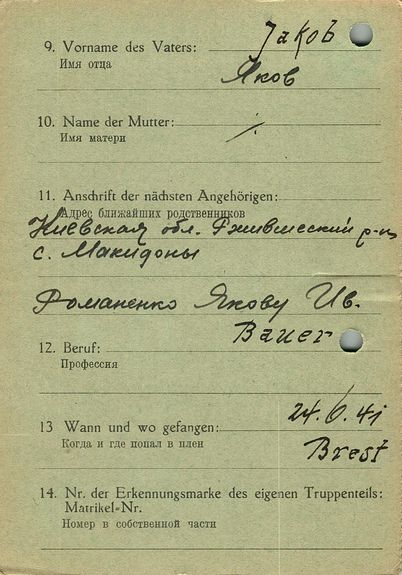 9. Vorname des Vaters: Jakob
Имя отца
Яков
10. Name der Mutter: ./.
Имя матери
11. Anschrift der nächsten Angehörigen:
Адрес ближайших родственников
Киевская обл. Ржищеский р-н
с. Македоны
Романенко Якову Ив.
Bauer
12. Beruf:
Профессия
24.6.41
13 Wann und wo gefangen:
Когда и где попал в плен
Brest
14. Nr. der Erkennungsmarke des eigenen Truppenteils:
Matrikel-Nr.
Номер в собственной части